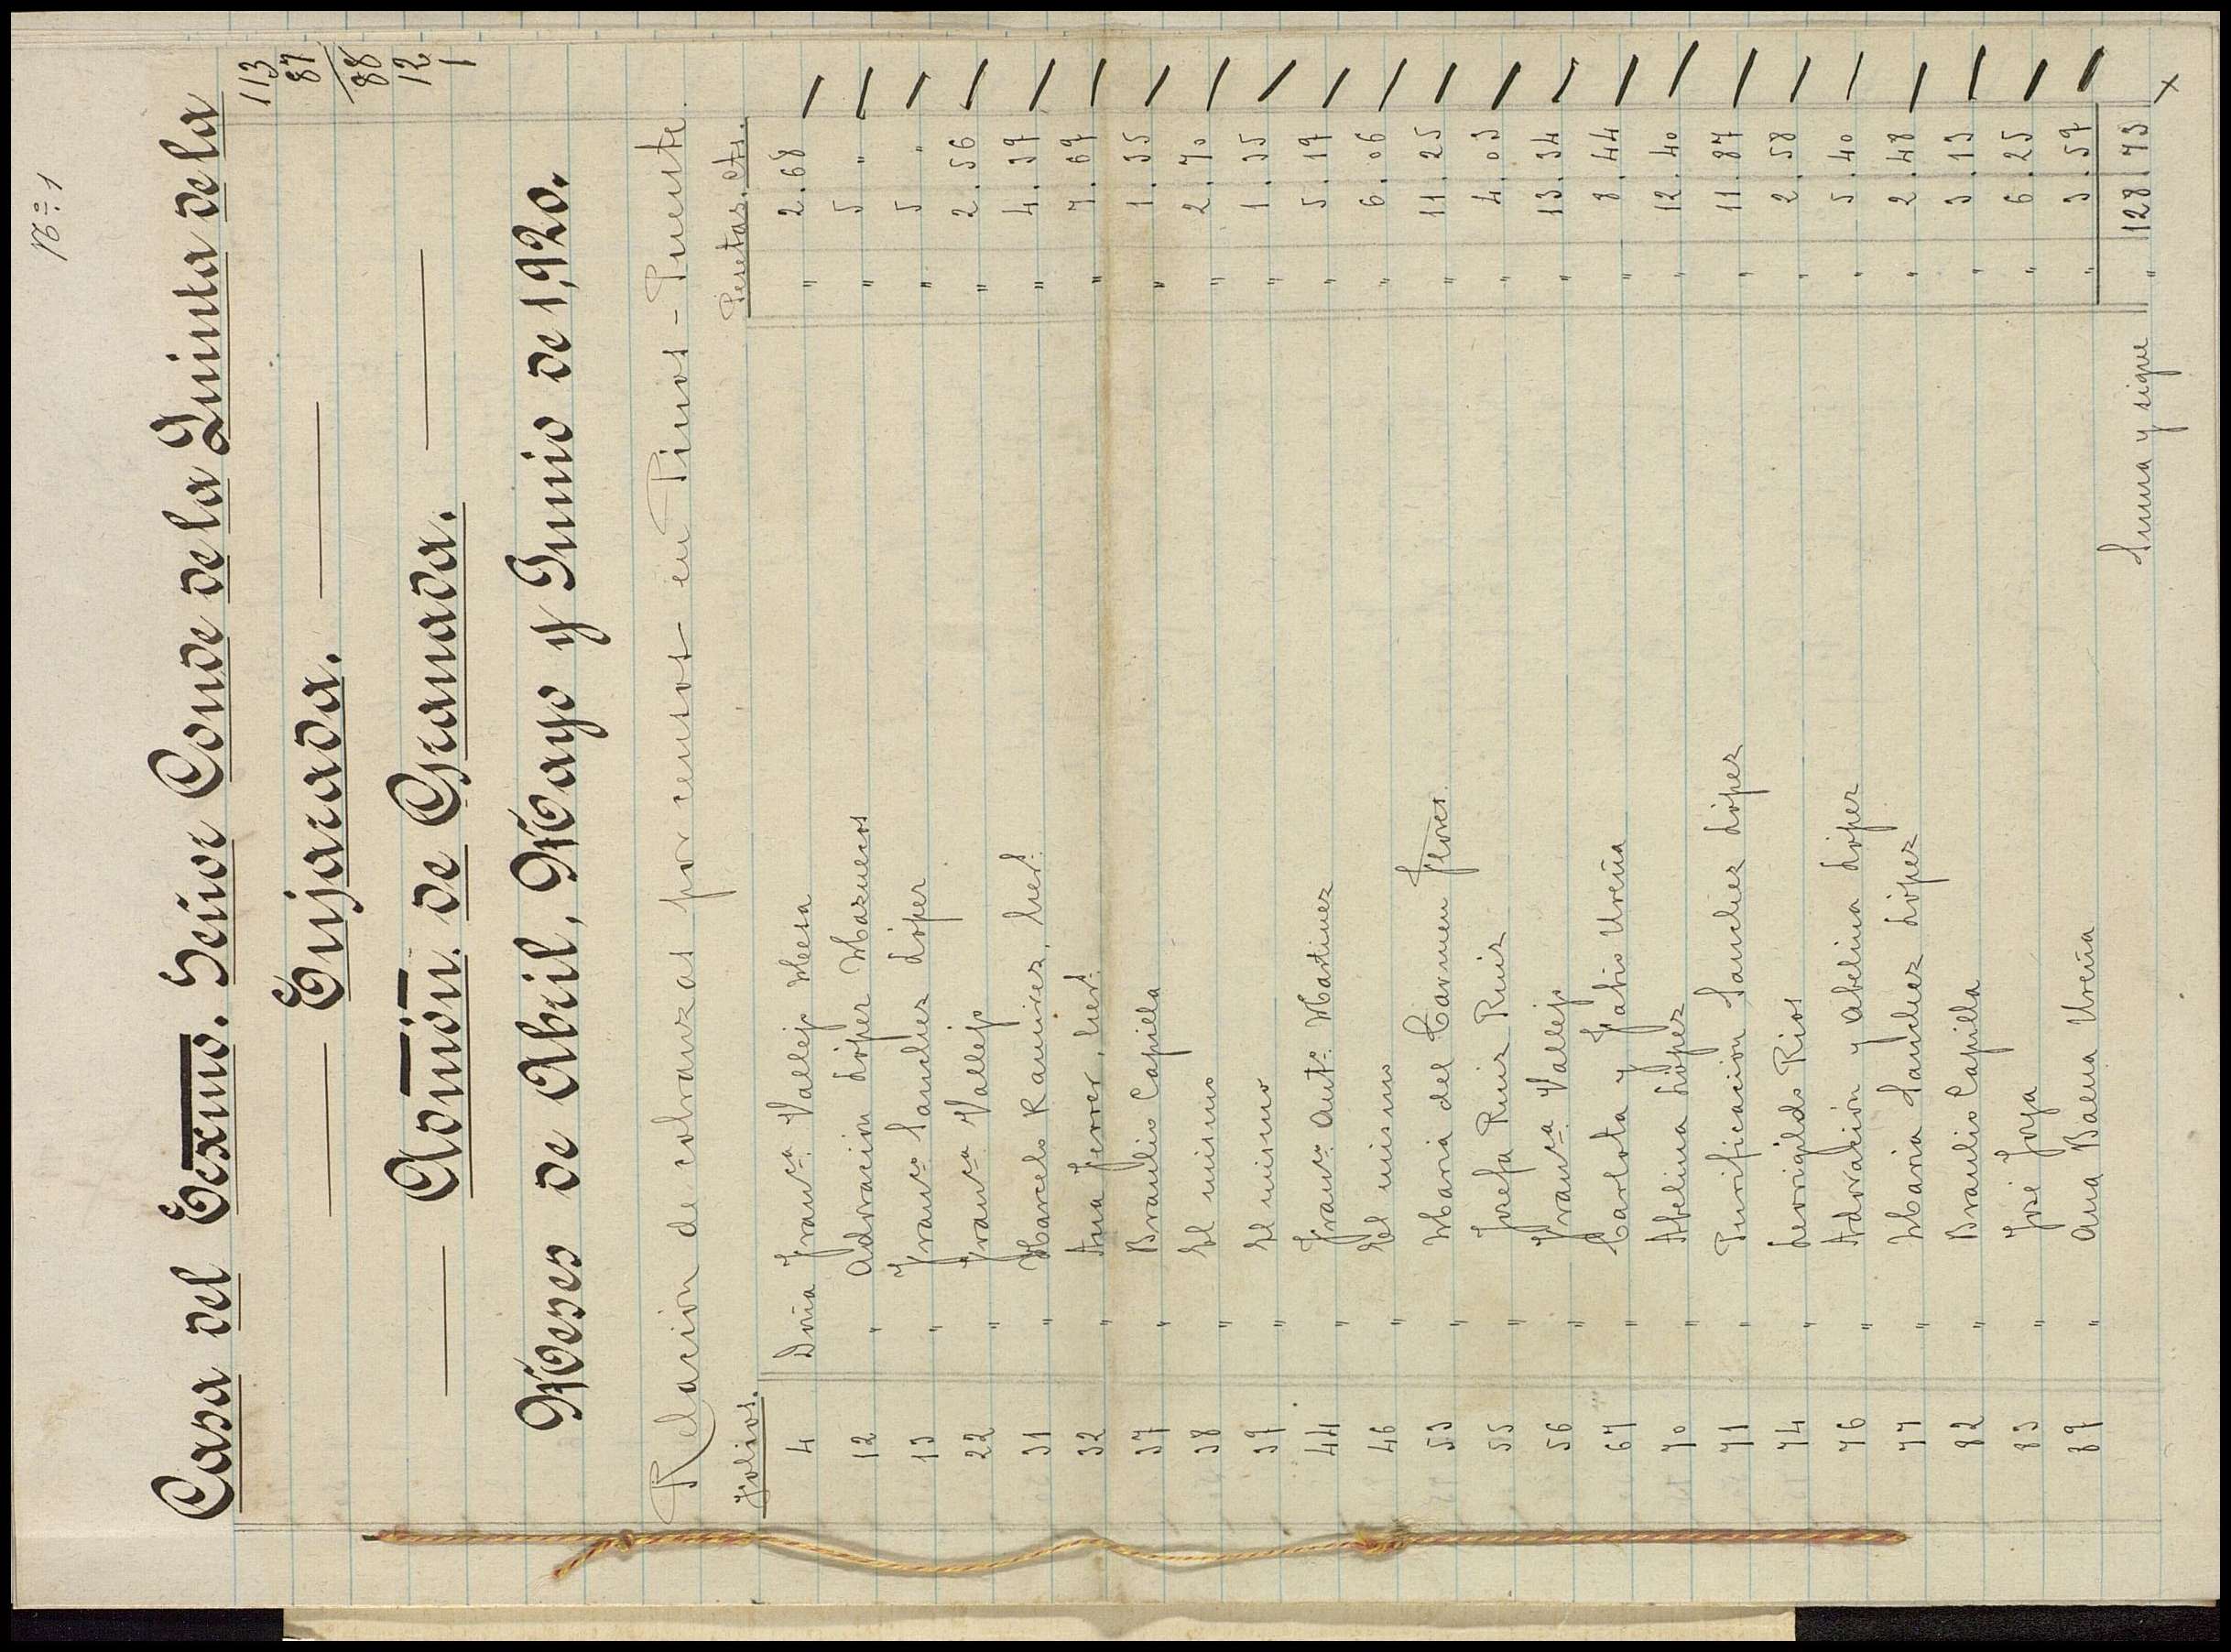 Nº 1
Casa del Excmo. Señor Conde de la Quinta de la
Enjarada.
113
87
88
12
1
Admón. de Granada.
Meses de Abril, Mayo y Junio de 1,920.
Relación de cobranzas por censos en Pinos-Puente.
Folios. Pesetas. Cts.
4 Doña Franca. Vallejo Mesa " 2.68
12 " Adoracion López Mazuecos " 5 "
13 " Franco. Sanchez López " 5 "
22 " Franca. Vallejo " 2.56
31 " Marcelo Ramirez, hered. " 4.39
32 " Ana Ferrer, hered. " 7.69
37 " Braulio Capilla " 1.35
38 " El mismo " 2.70
39 " El mismo " 1.35
44 " Franco. Anto. Martinez " 5.19
46 " El mismo " 6.06
53 " Maria del Carmen Flores " 11.25
55 " Josefa Ruiz Ruiz " 4.03
56 " Franca. Vallejo " 13.34
67 " Carlota y Fabio Ureña " 8.44
70 " Abelina López " 12.40
71 " Purificacion Sanchez López " 11.87
74 " Leovigildo Rios " 2.58
76 " Adoración y Abelina López " 5.40
77 " Maria Sanchez López " 2.48
82 " Braulio Capilla " 3.13
83 " José Joya " 6.25
89 " Ana Baena Ureña " 3.59
Suma y sigue " 128.73 x